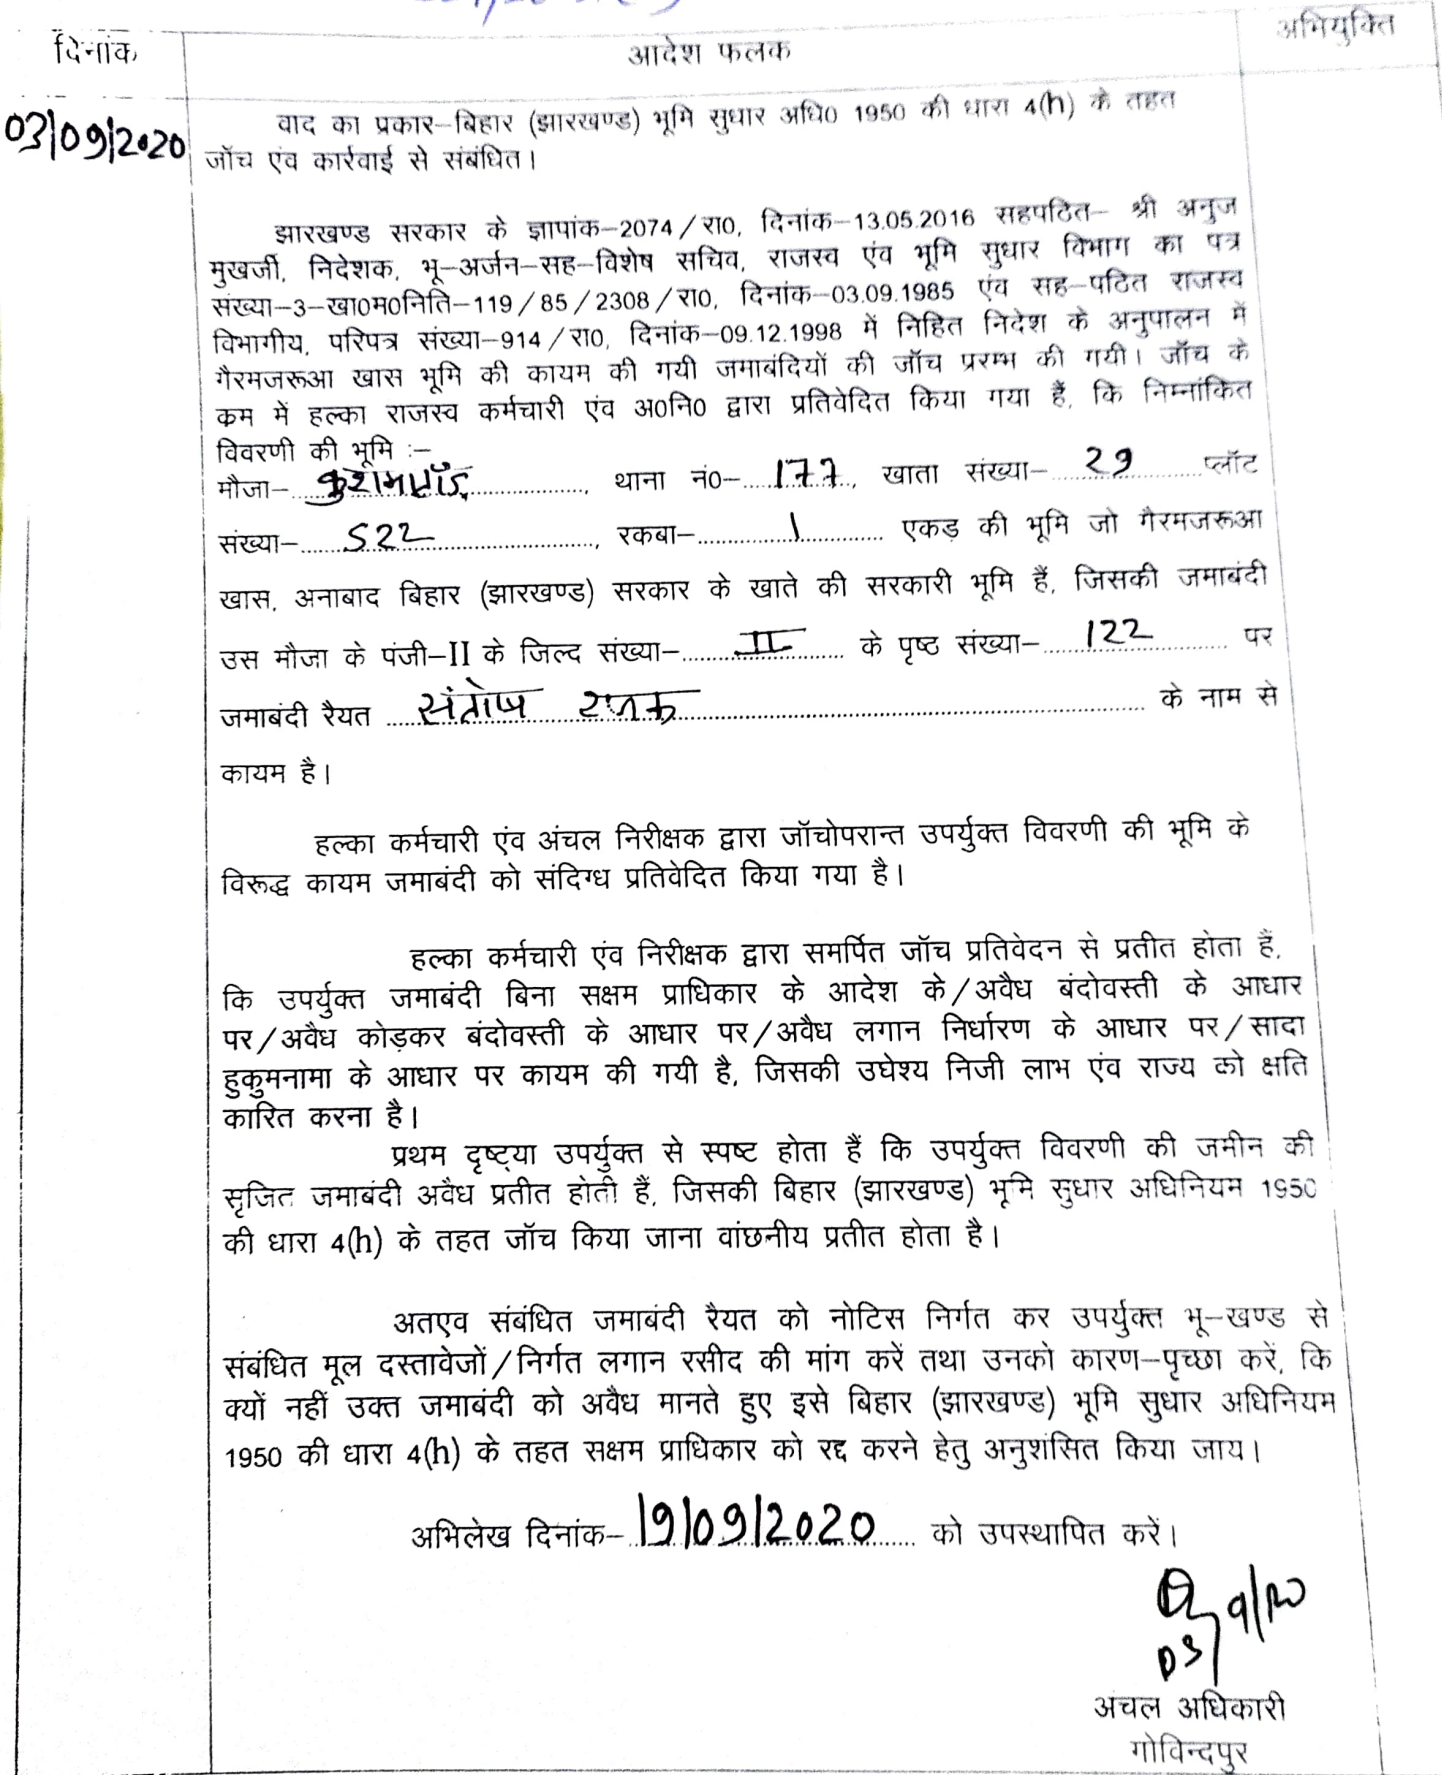 दिनांक आदेश फलक अभियुक्ति
03/09/2020 वाद का प्रकार–बिहार (झारखण्ड) भूमि सुधार अधि0 1950 की धारा 4(h) के तहत
जॉच एंव कार्रवाई से संबंधित।
झारखण्ड सरकार के ज्ञापांक–2074/रा0, दिनांक–13.05.2016 सहपठित– श्री अनुज
मुखर्जी, निदेशक, भू–अर्जन–सह–विशेष सचिव, राजस्व एंव भूमि सुधार विभाग का पत्र
संख्या–3–खा0म0निति–119/85/2308/रा0, दिनांक–03.09.1985 एंव सह–पठित राजस्व
विभागीय, परिपत्र संख्या–914/रा0, दिनांक–09.12.1998 में निहित निदेश के अनुपालन में
गैरमजरूआ खास भूमि की कायम की गयी जमाबंदियों की जॉच प्ररम्भ की गयी। जॉच के
कम में हल्का राजस्व कर्मचारी एंव अ0नि0 द्वारा प्रतिवेदित किया गया हैं, कि निम्नांकित
विवरणी की भूमि :–
मौजा–..............., थाना नं0–...177..., खाता संख्या–...29...प्लॉट
संख्या–...522..., रकबा–...1... एकड़ की भूमि जो गैरमजरूआ
खास, अनाबाद बिहार (झारखण्ड) सरकार के खाते की सरकारी भूमि हैं, जिसकी जमाबंदी
उस मौजा के पंजी–II के जिल्द संख्या–...II... के पृष्ठ संख्या–...122... पर
जमाबंदी रैयत ...संतोष रजक... के नाम से
कायम है।
हल्का कर्मचारी एंव अंचल निरीक्षक द्वारा जॉचोपरान्त उपर्युक्त विवरणी की भूमि के
विरूद्ध कायम जमाबंदी को संदिग्ध प्रतिवेदित किया गया है।
हल्का कर्मचारी एंव निरीक्षक द्वारा समर्पित जॉच प्रतिवेदन से प्रतीत होता हैं,
कि उपर्युक्त जमाबंदी बिना सक्षम प्राधिकार के आदेश के/अवैध बंदोवस्ती के आधार
पर/अवैध कोड़कर बंदोवस्ती के आधार पर/अवैध लगान निर्धारण के आधार पर/सादा
हुकुमनामा के आधार पर कायम की गयी है, जिसकी उघेश्य निजी लाभ एंव राज्य को क्षति
कारित करना है।
प्रथम दृष्ट्या उपर्युक्त से स्पष्ट होता हैं कि उपर्युक्त विवरणी की जमीन की
सृजित जमाबंदी अवैध प्रतीत होती हैं, जिसकी बिहार (झारखण्ड) भूमि सुधार अधिनियम 1950
की धारा 4(h) के तहत जॉच किया जाना वांछनीय प्रतीत होता है।
अतएव संबंधित जमाबंदी रैयत को नोटिस निर्गत कर उपर्युक्त भू–खण्ड से
संबंधित मूल दस्तावेजों/निर्गत लगान रसीद की मांग करें तथा उनको कारण–पृच्छा करें, कि
क्यों नहीं उक्त जमाबंदी को अवैध मानते हुए इसे बिहार (झारखण्ड) भूमि सुधार अधिनियम
1950 की धारा 4(h) के तहत सक्षम प्राधिकार को रद्द करने हेतु अनुशंसित किया जाय।
अभिलेख दिनांक–...19/09/2020... को उपस्थापित करें।
अंचल अधिकारी
गोविन्दपुर